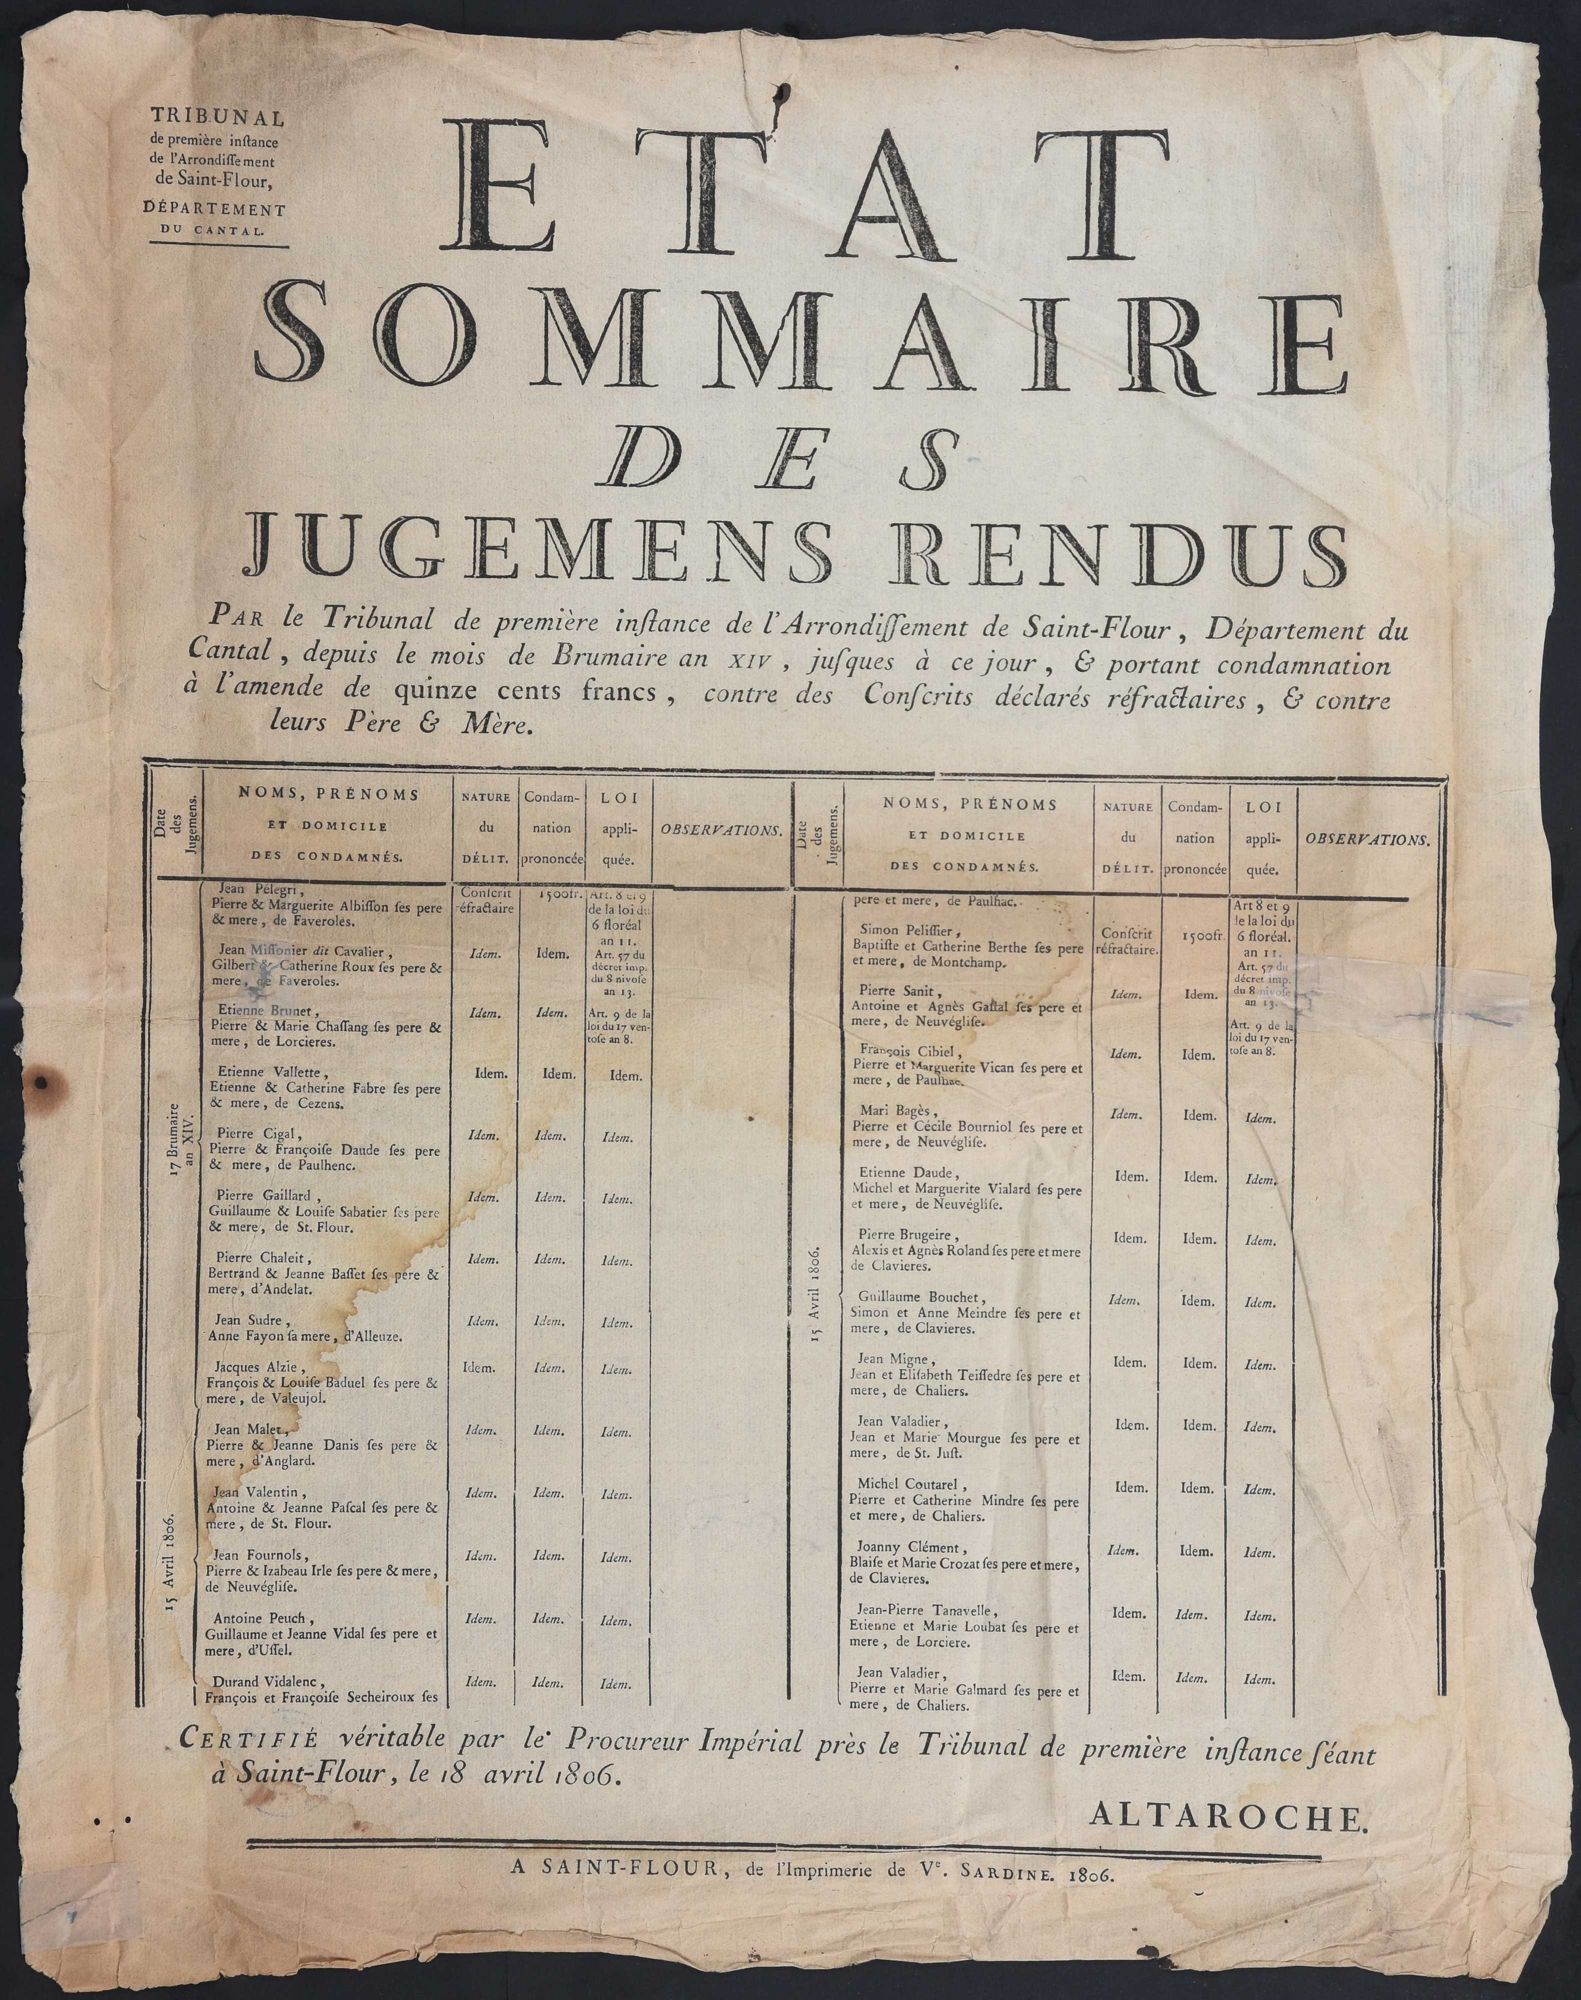 TRIBUNAL
de première inſtance
de l'Arrondiſſement
de Saint-Flour,
DÉPARTEMENT
DU CANTAL.
ETAT
SOMMAIRE
DES
JUGEMENS RENDUS
PAR le Tribunal de première inſtance de l'Arrondiſſement de Saint-Flour, Département du
Cantal, depuis le mois de Brumaire an XIV, juſques à ce jour, & portant condamnation
à l'amende de quinze cents francs, contre des Conſcrits déclarés réfractaires, & contre
leurs Père & Mère.
Date
des
Jugemens.
NOMS, PRÉNOMS
ET DOMICILE
DES CONDAMNÉS.
NATURE
du
DÉLIT.
Condam-
nation
prononcée
LOI
appli-
quée.
OBSERVATIONS.
17 Brumaire
an XIV.
Jean Pélegri,
Pierre & Marguerite Albiſſon ſes pere
& mere, de Faveroles.
Conſcrit
réfractaire
1500fr.
Art. 8 et 9
de la loi du
6 floréal
an 11.
Art. 57 du
décret imp.
du 8 nivoſe
an 13.
Art. 9 de la
loi du 17 ven-
toſe an 8.
Jean Miſſonier dit Cavalier,
Gilbert & Catherine Roux ſes pere &
mere, de Faveroles.
Idem. Idem.
Etienne Brunet,
Pierre & Marie Chaſſang ſes pere &
mere, de Lorcieres.
Idem. Idem.
Etienne Vallette,
Etienne & Catherine Fabre ſes pere
& mere, de Cezens.
Idem. Idem. Idem.
Pierre Cigal,
Pierre & Françoiſe Daude ſes pere
& mere, de Paulhenc.
Idem. Idem. Idem.
Pierre Gaillard,
Guillaume & Louiſe Sabatier ſes pere
& mere, de St. Flour.
Idem. Idem. Idem.
Pierre Chaleit,
Bertrand & Jeanne Baſſet ſes pere &
mere, d'Andelat.
Idem. Idem. Idem.
Jean Sudre,
Anne Fayon ſa mere, d'Alleuze.
Idem. Idem. Idem.
Jacques Alzie,
François & Louiſe Baduel ſes pere &
mere, de Valeujol.
Idem. Idem. Idem.
15 Avril 1806.
Jean Malet,
Pierre & Jeanne Danis ſes pere &
mere, d'Anglard.
Idem. Idem. Idem.
Jean Valentin,
Antoine & Jeanne Paſcal ſes pere &
mere, de St. Flour.
Idem. Idem. Idem.
Jean Fournols,
Pierre & Izabeau Irle ſes pere & mere,
de Neuvégliſe.
Idem. Idem. Idem.
Antoine Peuch,
Guillaume et Jeanne Vidal ſes pere et
mere, d'Uſſel.
Idem. Idem. Idem.
Durand Vidalenc,
François et Françoiſe Secheiroux ſes
Idem. Idem. Idem.
Date
des
Jugemens.
NOMS, PRÉNOMS
ET DOMICILE
DES CONDAMNÉS.
NATURE
du
DÉLIT.
Condam-
nation
prononcée
LOI
appli-
quée.
OBSERVATIONS.
15 Avril 1806.
pere et mere, de Paulhac.
Simon Peliſſier,
Baptiſte et Catherine Berthe ſes pere
et mere, de Montchamp.
Conſcrit
réfractaire.
1500fr.
Art 8 et 9
de la loi du
6 floréal.
an 11.
Art. 57 du
décret imp.
du 8 nivoſe
an 13.
Art. 9 de la
loi du 17 ven-
toſe an 8.
Pierre Sanit,
Antoine et Agnès Gaſtal ſes pere et
mere, de Neuvégliſe.
Idem. Idem.
François Cibiel,
Pierre et Marguerite Vican ſes pere et
mere, de Paulhac.
Idem. Idem.
Mari Bagès,
Pierre et Cécile Bourniol ſes pere et
mere, de Neuvégliſe.
Idem. Idem. Idem.
Etienne Daude,
Michel et Marguerite Vialard ſes pere
et mere, de Neuvégliſe.
Idem. Idem. Idem.
Pierre Brugeire,
Alexis et Agnès Roland ſes pere et mere
de Clavieres.
Idem. Idem. Idem.
Guillaume Bouchet,
Simon et Anne Meindre ſes pere et
mere, de Clavieres.
Idem. Idem. Idem.
Jean Migne,
Jean et Eliſabeth Teiſſedre ſes pere et
mere, de Chaliers.
Idem. Idem. Idem.
Jean Valadier,
Jean et Marie Mourgue ſes pere et
mere, de St. Juſt.
Idem. Idem. Idem.
Michel Coutarel,
Pierre et Catherine Mindre ſes pere
et mere, de Chaliers.
Idem. Idem. Idem.
Joanny Clément,
Blaiſe et Marie Crozat ſes pere et mere,
de Clavieres.
Idem. Idem. Idem.
Jean-Pierre Tanavelle,
Etienne et Marie Loubat ſes pere et
mere, de Lorciere.
Idem. Idem. Idem.
Jean Valadier,
Pierre et Marie Galmard ſes pere et
mere, de Chaliers.
Idem. Idem. Idem.
CERTIFIÉ véritable par le Procureur Impérial près le Tribunal de première inſtance ſéant
à Saint-Flour, le 18 avril 1806.
ALTAROCHE.
A SAINT-FLOUR, de l'Imprimerie de Ve. SARDINE. 1806.